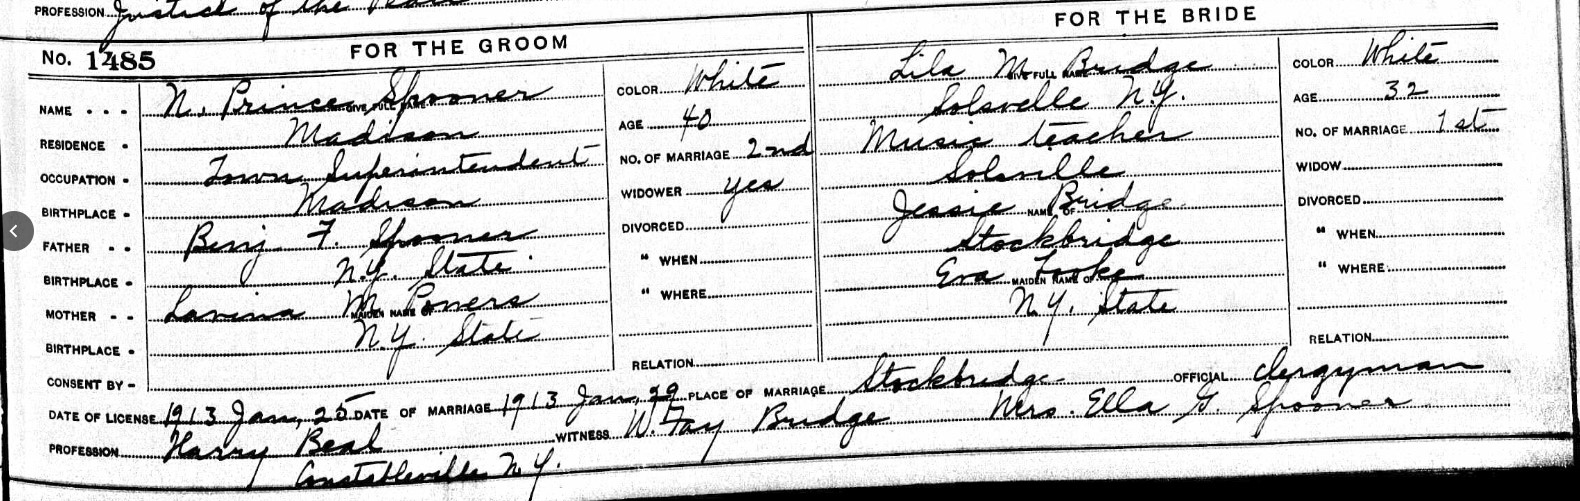 PROFESSION Justice of the Peace
No. 1485 FOR THE GROOM
NAME N. Prince Spooner GIVE FULL NAME
RESIDENCE Madison
OCCUPATION Town Superintendent
BIRTHPLACE Madison
FATHER Benj. F. Spooner
BIRTHPLACE N.Y. State
MOTHER Lavina M. Powers MAIDEN NAME OF
BIRTHPLACE N.Y. State
CONSENT BY
COLOR White
AGE 40
NO. OF MARRIAGE 2nd
WIDOWER yes
DIVORCED
" WHEN
" WHERE
RELATION
FOR THE BRIDE
Lila M. Bridge GIVE FULL NAME
Solsvelle N.Y.
Music teacher
Solsville
Jessie Bridge NAME OF
Stockbridge
Eva Tooke MAIDEN NAME OF
N.Y. State
COLOR White
AGE 32
NO. OF MARRIAGE 1st
WIDOW
DIVORCED
" WHEN
" WHERE
RELATION
DATE OF LICENSE 1913 Jan, 25 DATE OF MARRIAGE 1913 Jan, 29 PLACE OF MARRIAGE Stockbridge OFFICIAL clergyman
PROFESSION Harry Beal WITNESS W. Fay Bridge Mrs. Ella G. Spooner
Constableville N.Y.